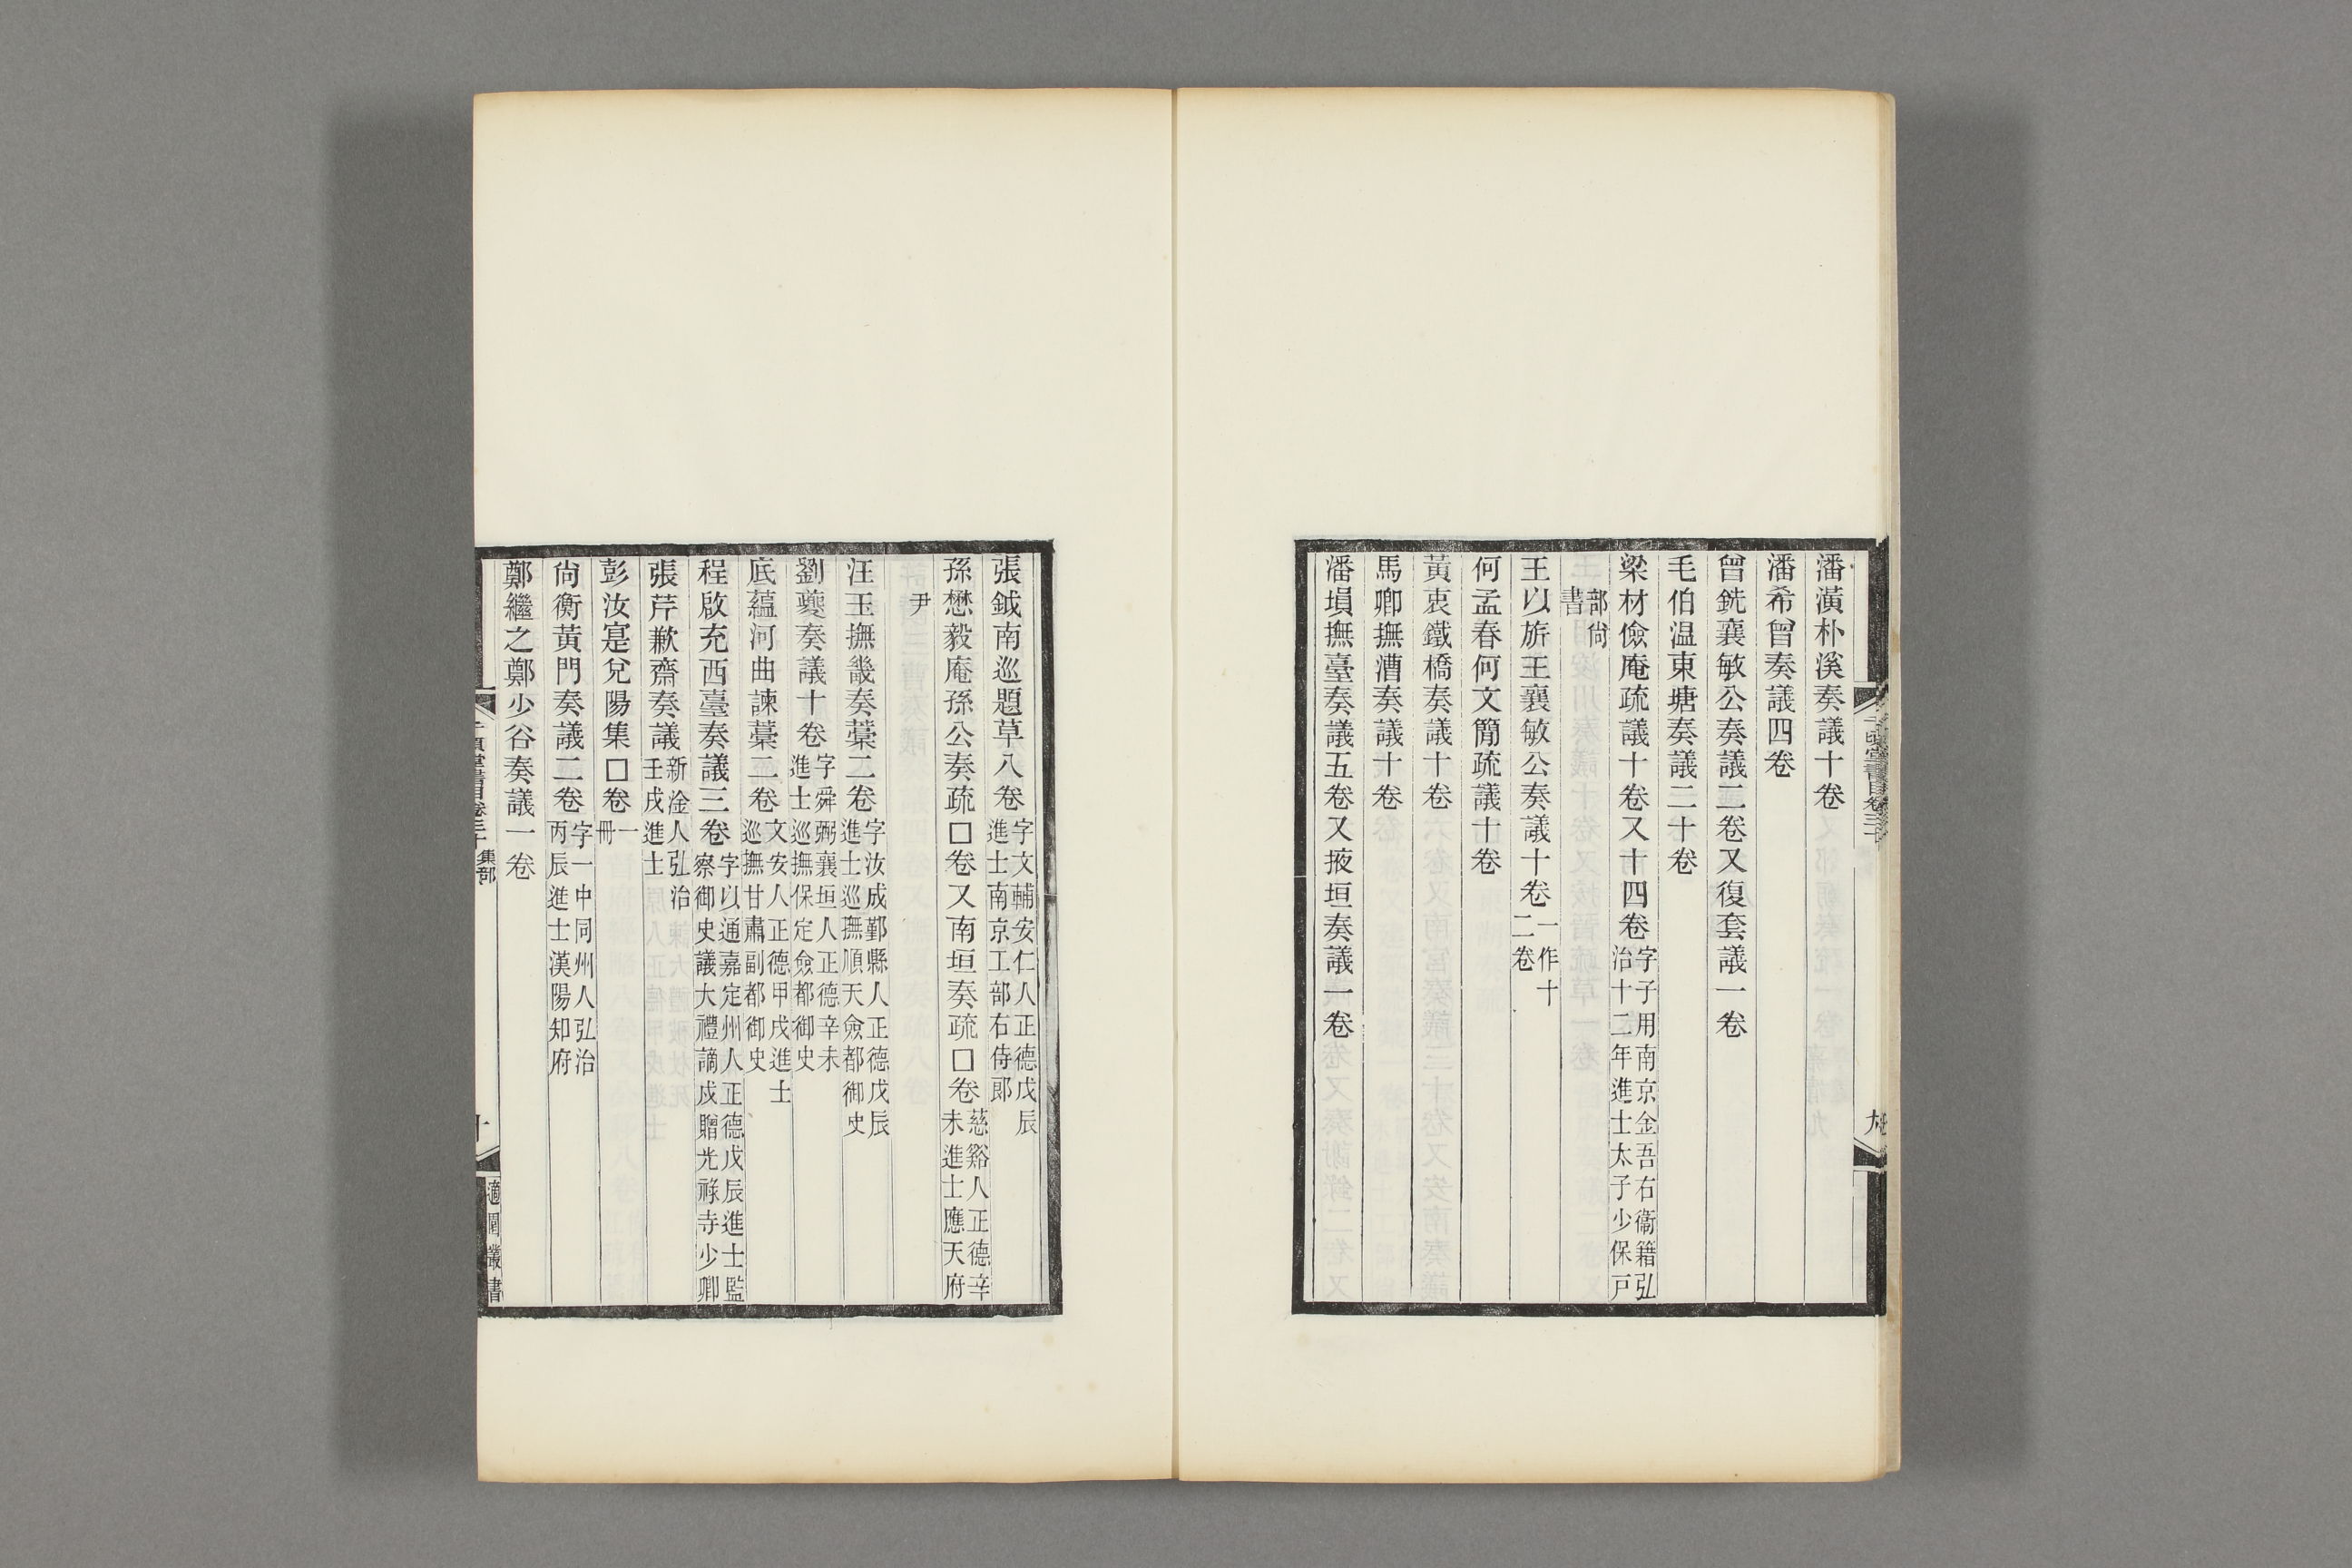 潘潢朴溪奏議十卷
潘希曾奏議四卷
曾銑襄敏公奏議二卷又復套議一卷
毛伯温東塘奏議二十卷
梁材儉庵疏議十卷又十四卷字子用南京金吾右衞籍弘治十二年進士太子少保戸
部尙書
王以旂王襄敏公奏議十卷一作十二卷
何孟春何文簡疏議十卷
黃衷鐵橋奏議十卷
馬卿撫漕奏議十卷
潘塤撫臺奏議五卷又掖垣奏議一卷
九
張鉞南巡題草八卷字文輔安仁人正德戊辰進士南京工部右侍郎
孫懋毅庵孫公奏疏□卷又南垣奏疏□卷慈谿人正德辛未進士應天府
尹
汪玉撫畿奏藁二卷字汝成鄞縣人正德戊辰進士巡撫順天僉都御史
劉夔奏議十卷字舜弼襄垣人正德辛未進士巡撫保定僉都御史
底蘊河曲諫藁二卷文安人正德甲戌進士巡撫甘肅副都御史
程啟充西臺奏議三卷字以通嘉定州人正德戊辰進士監察御史議大禮謫戍贈光祿寺少卿
張芹歉齋奏議新淦人弘治壬戌進士
彭汝寔兌陽集□卷一冊
尙衡黃門奏議二卷字一中同州人弘治丙辰進士漢陽知府
鄭繼之鄭少谷奏議一卷
千頃堂書目卷三十 集部
十
適園叢書